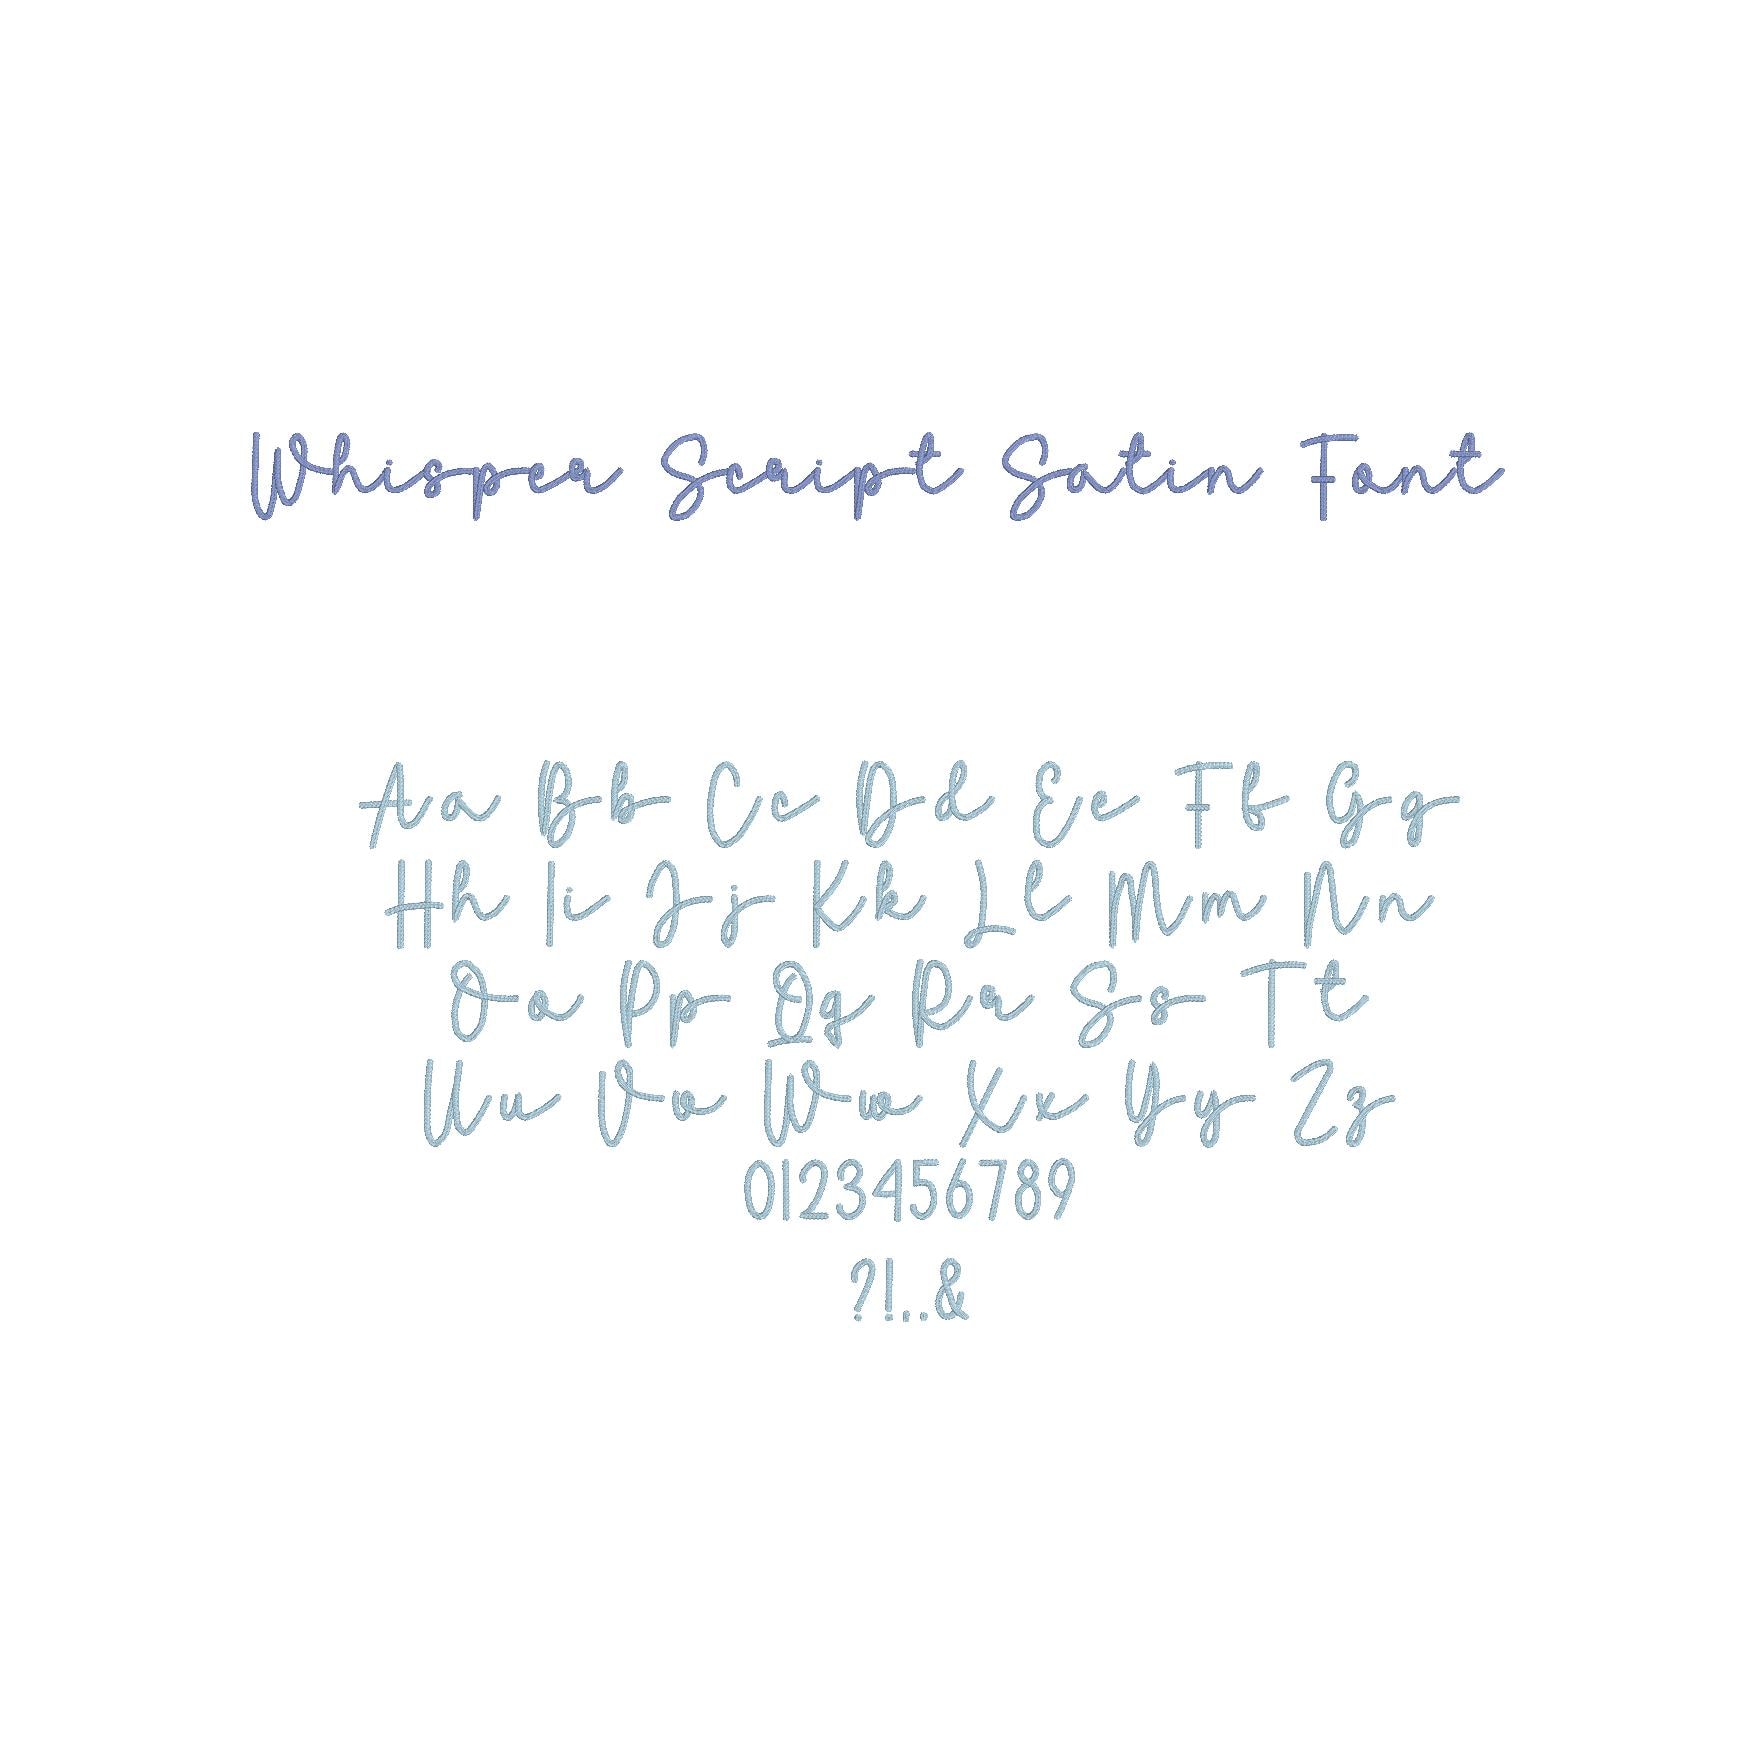 Whisper Script Satin Font
Aa Bb Cc Dd Ee Ff Gg
Hh Ii Jj Kk Ll Mm Nn
Oo Pp Qq Rr Ss Tt
Uu Vv Ww Xx Yy Zz
0123456789
?!,.&